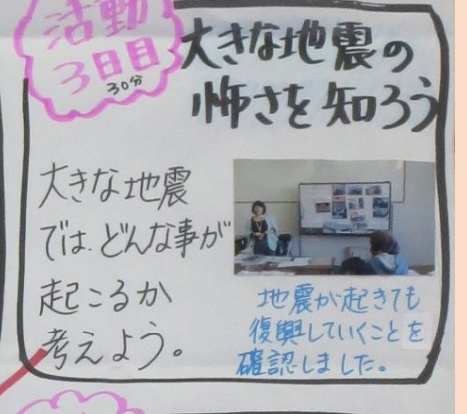 活動
3日目
30分
大きな地震の
怖さを知ろう
大きな地震
では、どんな事が
起こるか
考えよう。
地震が起きても
復興していくことを
確認しました。